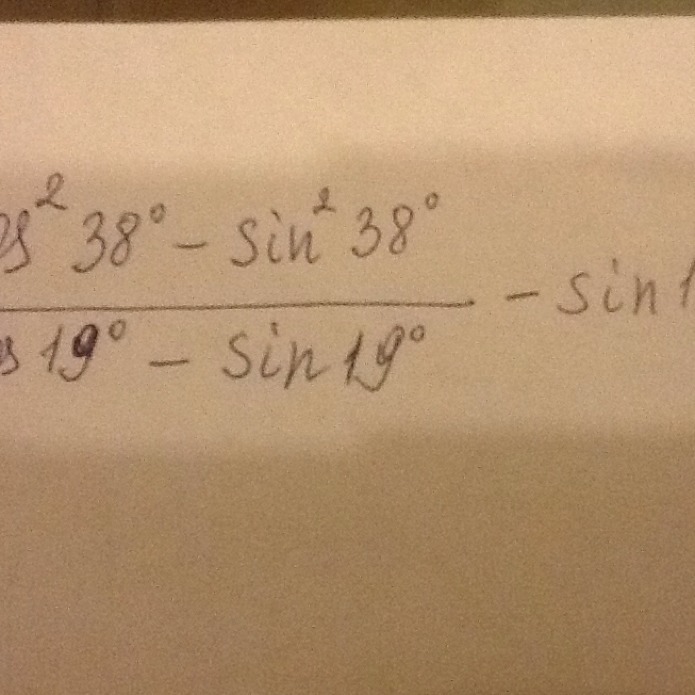 cos² 38° - sin² 38°
cos 19° - sin 19° - sin 1